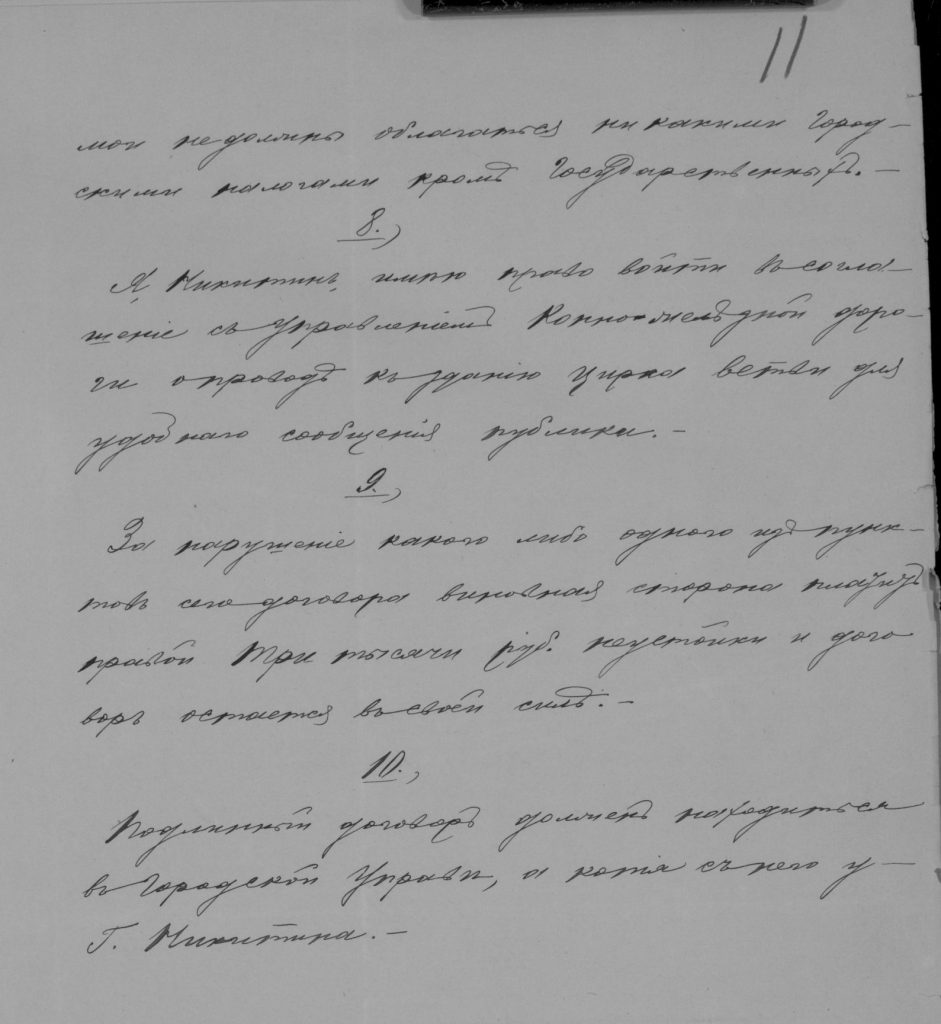 11
мои не должны облагаться никакими Город-
скими налогами кромѣ Государственныхъ. —
8.,
Я, Никитинъ, имѣю право войти въ согла-
шеніе съ Управленіемъ Конно-желѣзной доро-
ги о проводѣ къ зданію цирка вѣтви для
удобнаго сообщенія публики. —
9.,
За нарушеніе какого либо одного изъ пунк-
товъ сего договора виновная сторона платитъ
правой Три тысячи руб. неустойки и дого
воръ остается въ своей силѣ. —
10.,
Подлинный договоръ долженъ находиться
въ Городской Управѣ, а копія съ него у —
Г. Никитина. —